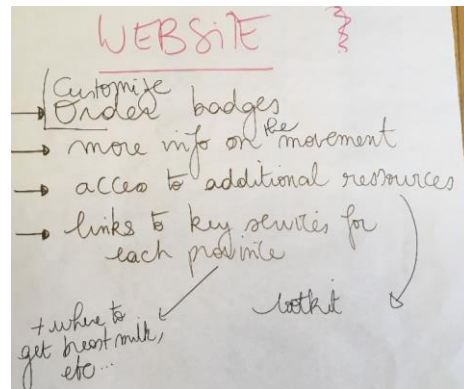 WEBSITE
Customize
→ Order badges
→ more info on the movement
→ acces to additional ressources
→ links to key services for
each province
+ where to
get breast milk,
etc...
toolkit